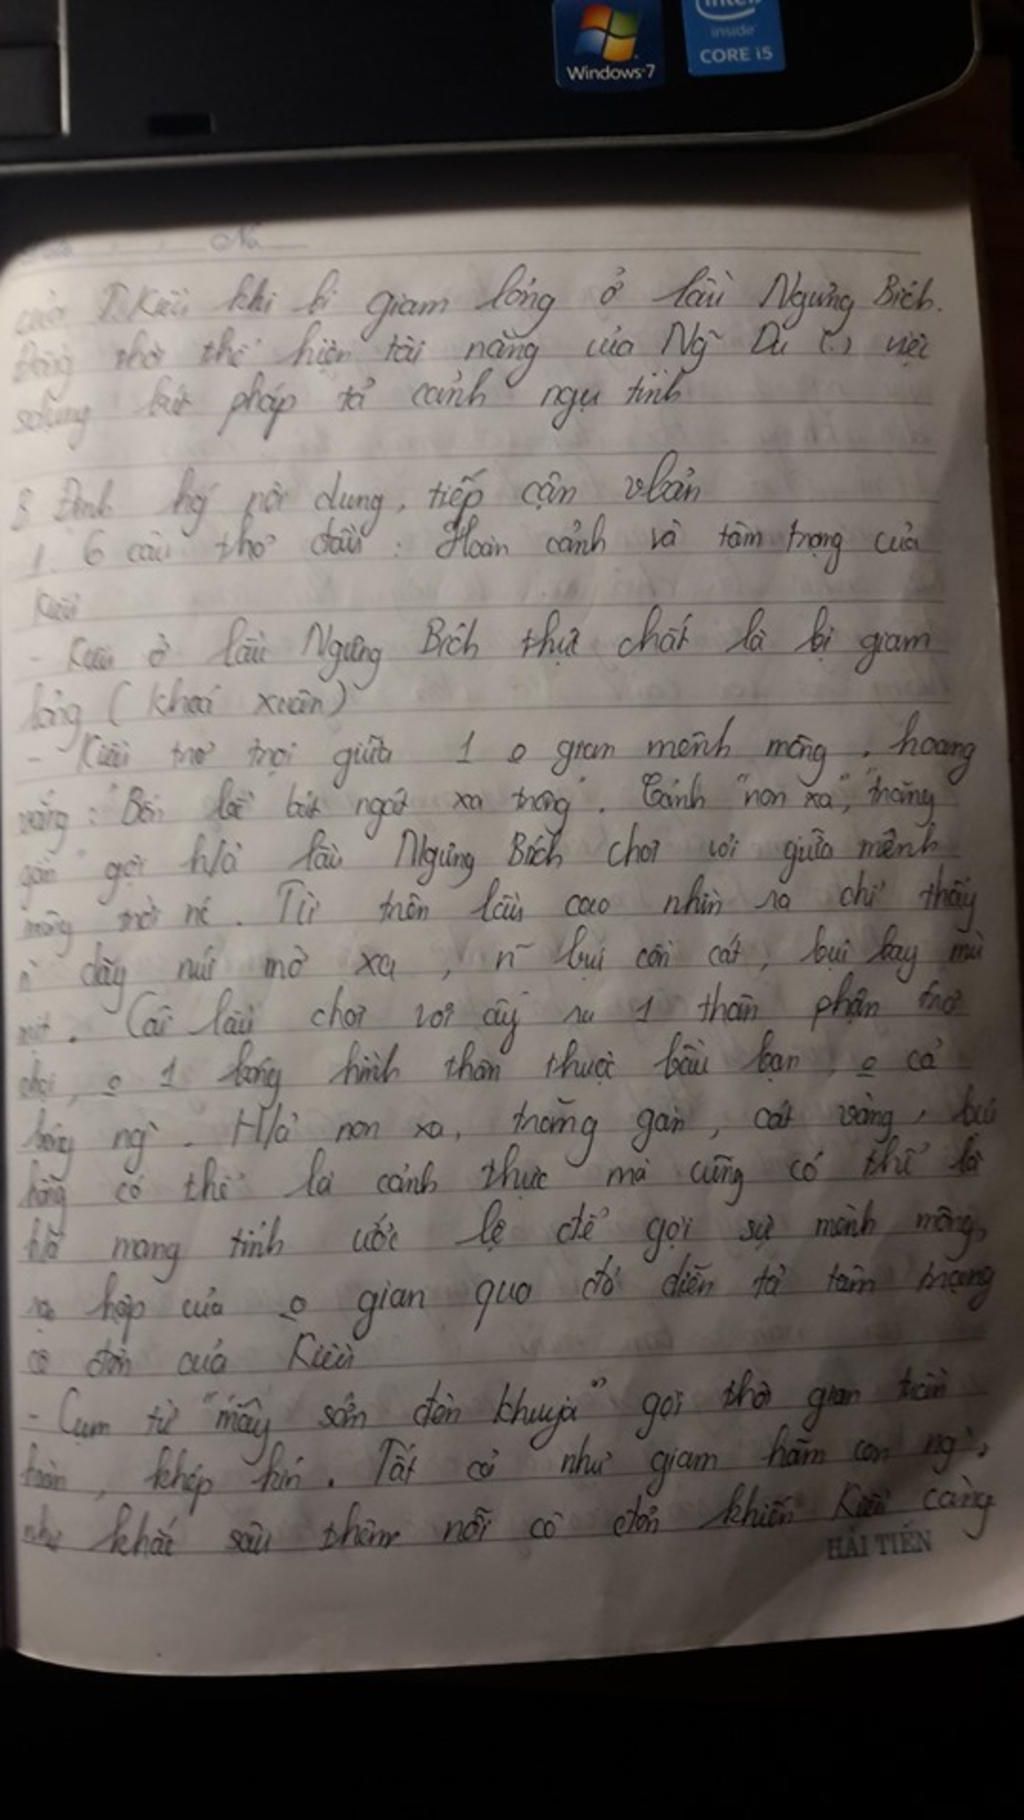 intel
inside
CORE i5
Windows 7
No
của T.Kiều khi bị giam lỏng ở lầu Ngưng Bích.
Đồng thời thể hiện tài năng của Ng~ Du (.) việc
sdụng bút pháp tả cảnh ngụ tình
B Định hg nội dung, tiếp cận vbản
1. 6 câu thơ đầu : Hoàn cảnh và tâm trạng của
Kiều
- Kiều ở lầu Ngưng Bích thực chất là bị giam
lỏng (khoá xuân)
- Kiều trơ trọi giữa 1 o gian mênh mông, hoang
vắng : "Bốn bề bát ngát xa trông". Cảnh "non xa", "trăng
gần" gợi h/ả lầu Ngưng Bích chơi vơi giữa mênh
mông trời nc. Từ trên lầu cao nhìn ra chỉ thấy
n~ dãy núi mờ xa, n~ bụi cồn cát, bụi bay mù
mịt. Cái lầu chơi vơi ấy 1 thân phận trơ
trọi, o 1 bóng hình thân thuộc bầu bạn, o cả
bóng ng`. H/ả non xa, trăng gần, cát vàng, bụi
hồng có thể là cảnh thực mà cũng có thể là
h/ả mang tính ước lệ để gợi sự mênh mông,
rợn hợp của o gian qua đó diễn tả tâm trạng
cô đơn của Kiều
- Cụm từ "mây sớm đèn khuya" gợi thời gian tuần
hoàn, khép kín. Tất cả như giam hãm con ng`,
như khắc sâu thêm nỗi cô đơn khiến Kiều càng
HẢI TIẾN